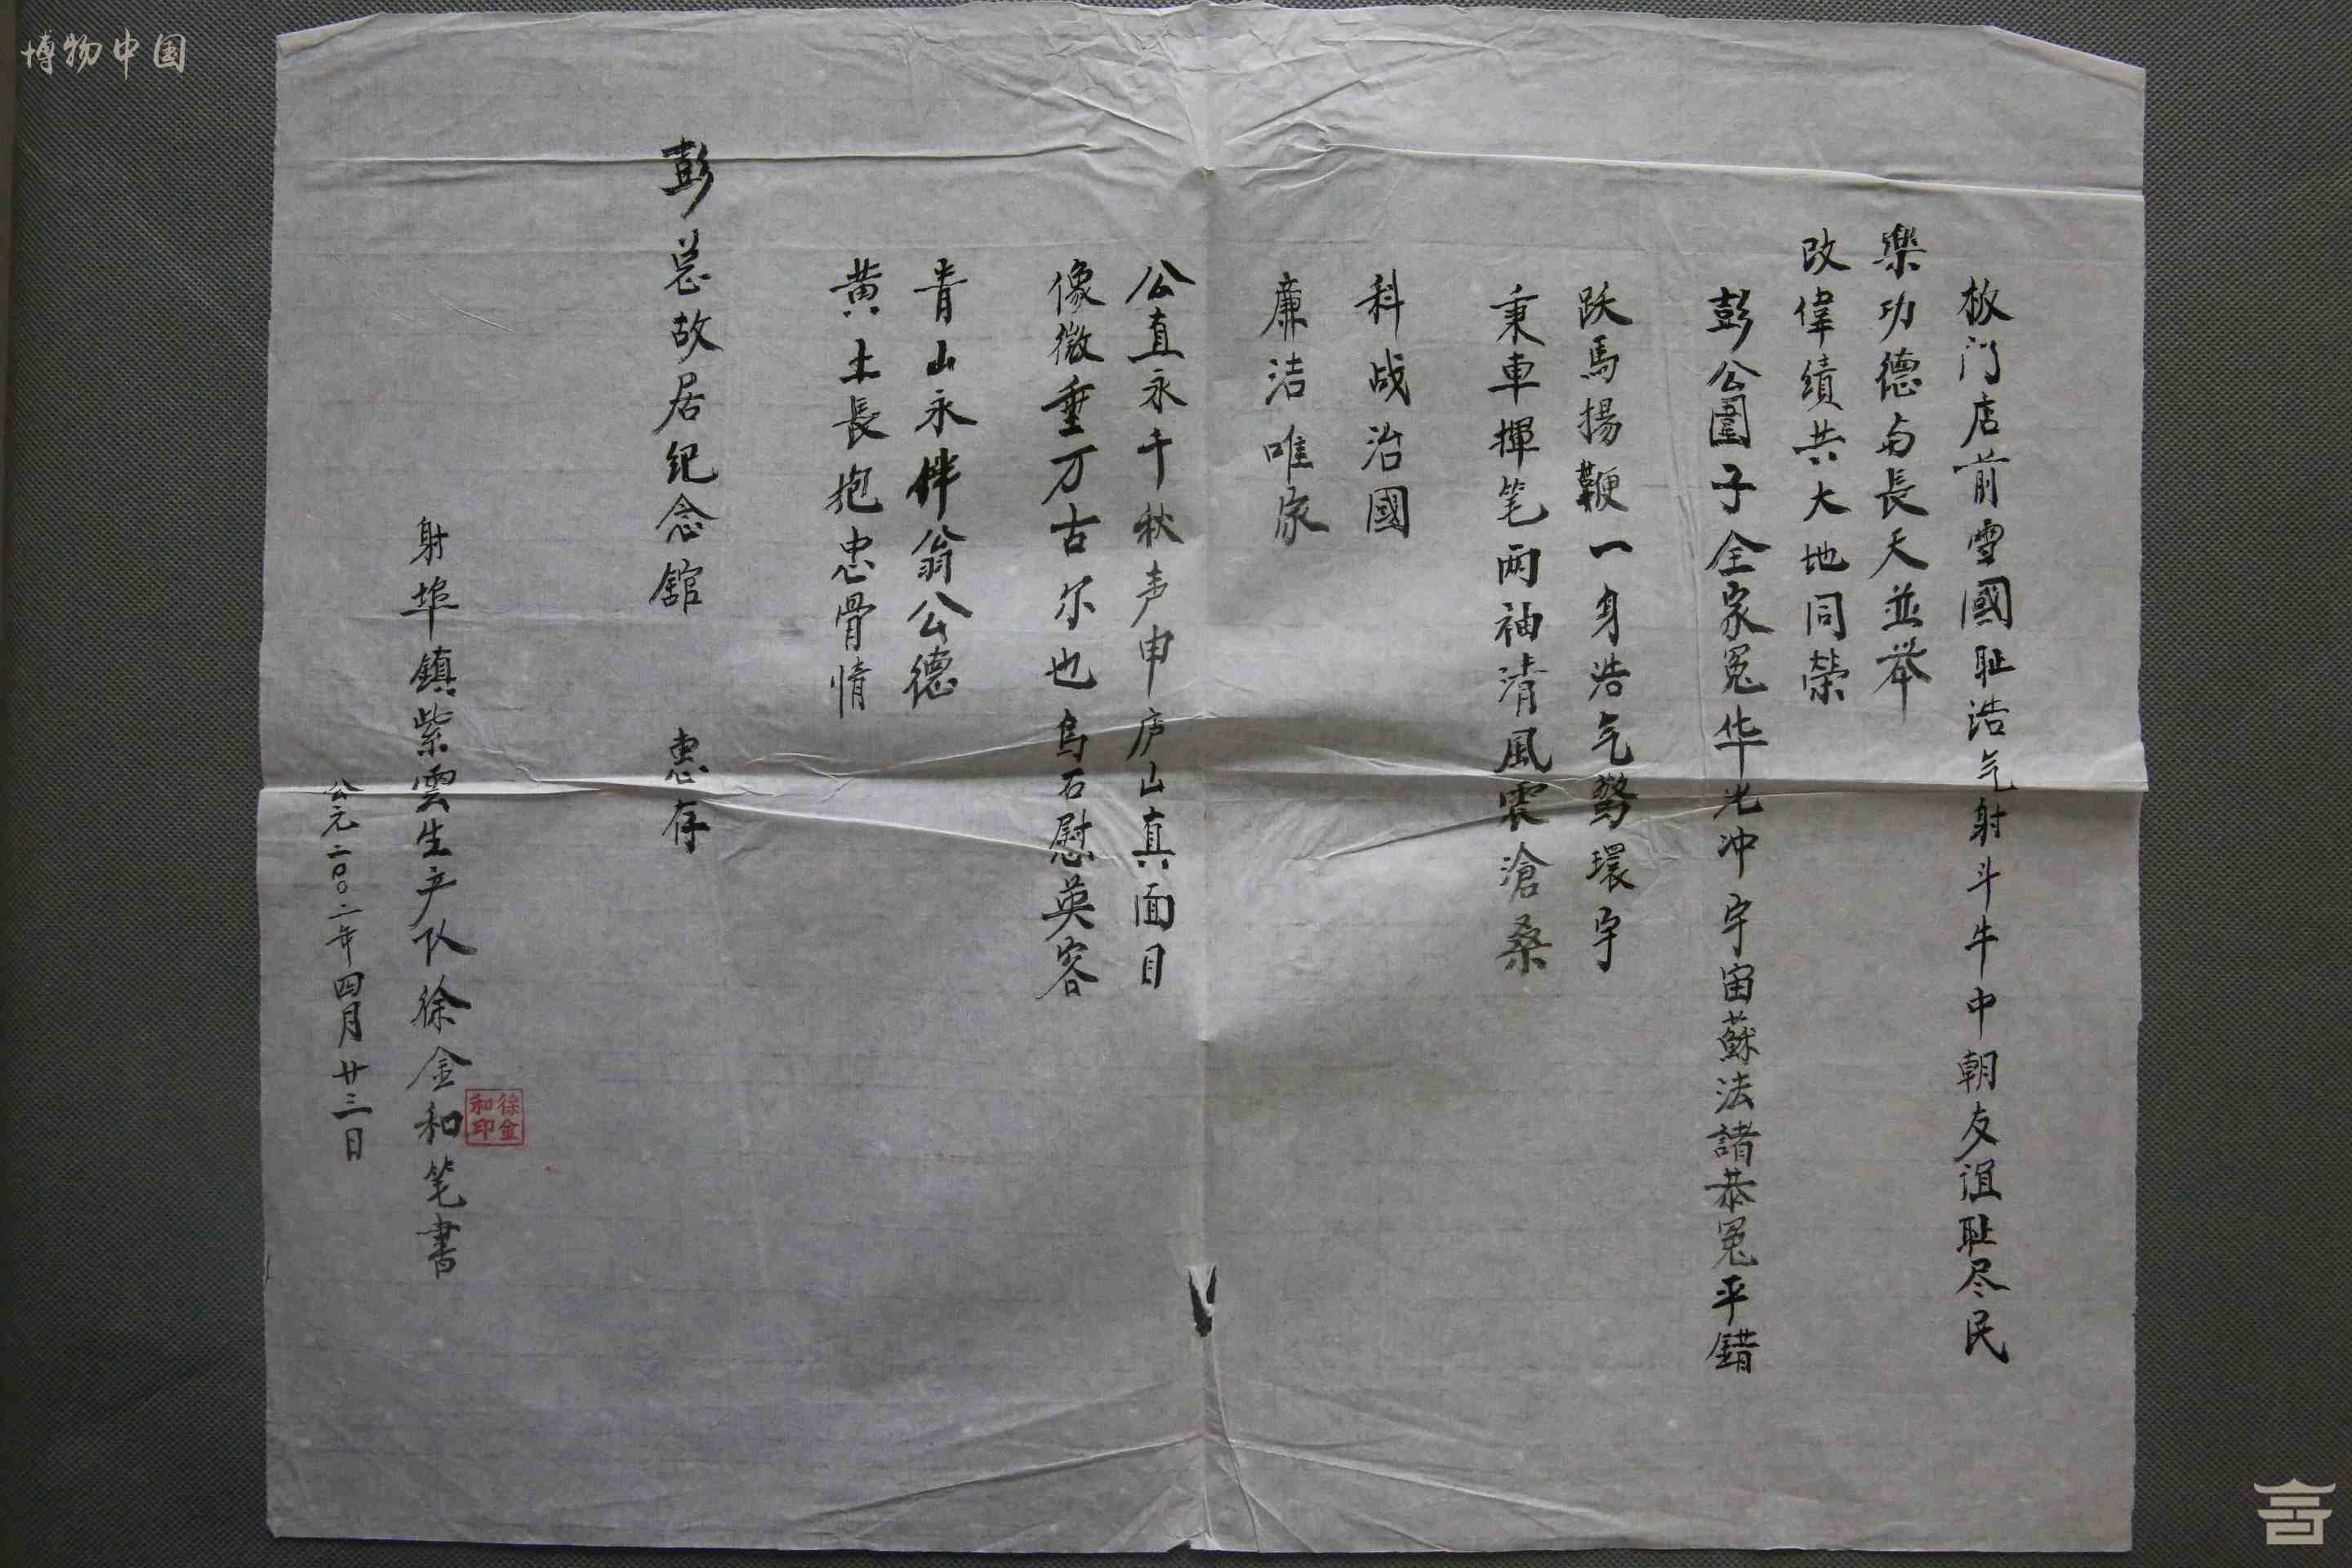 板门店前雪國耻浩气射斗牛中朝友谊耻尽民
樂功德与長天並举
改偉績共大地同榮
彭公圕子全家冤华光冲宇宙蘇法諸恭冤平錯
跃馬揚鞭一身浩气驚環宇
秉車揮笔两袖清風震滄桑
科战治國
廉洁唯家
公直永千秋声申庐山真面目
像徵垂万古尔也乌石慰英容
青山永伴翁公德
黄土長抱忠骨情
彭总故居纪念舘 惠存
射埠鎮紫雲生产队徐金和笔書
徐金和印
公元二00二年四月廿三日
博物中国